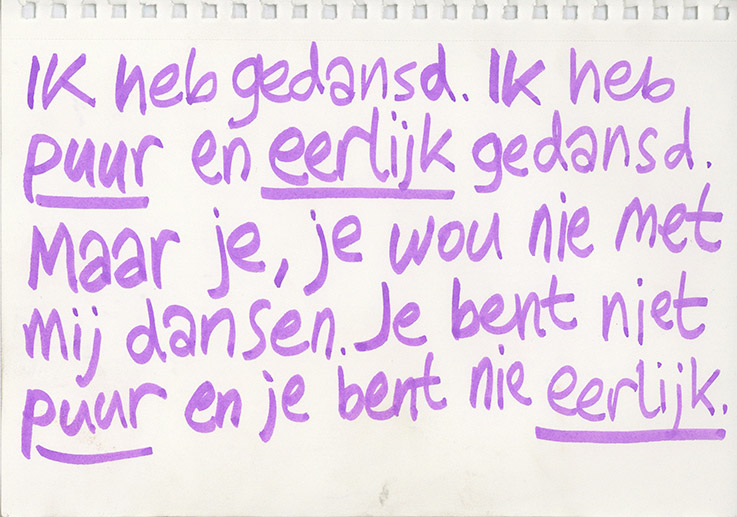 Ik heb gedansd. Ik heb
puur en eerlijk gedansd.
Maar je, je wou nie met
mij dansen. Je bent niet
puur en je bent nie eerlijk.